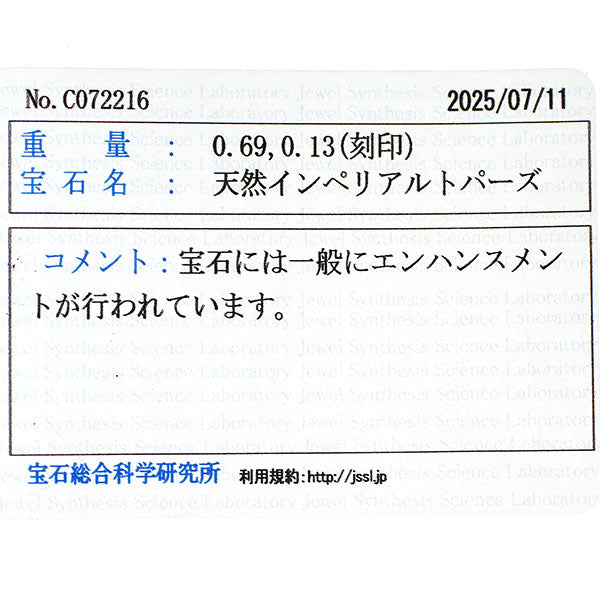 No. C072216 2025/07/11
重量 : 0.69,0.13(刻印)
宝石名 : 天然インペリアルトパーズ
コメント:宝石には一般にエンハンスメン
トが行われています。
宝石総合科学研究所 利用規約:http://jssl.jp
Jewel Synthesis Science Laboratory